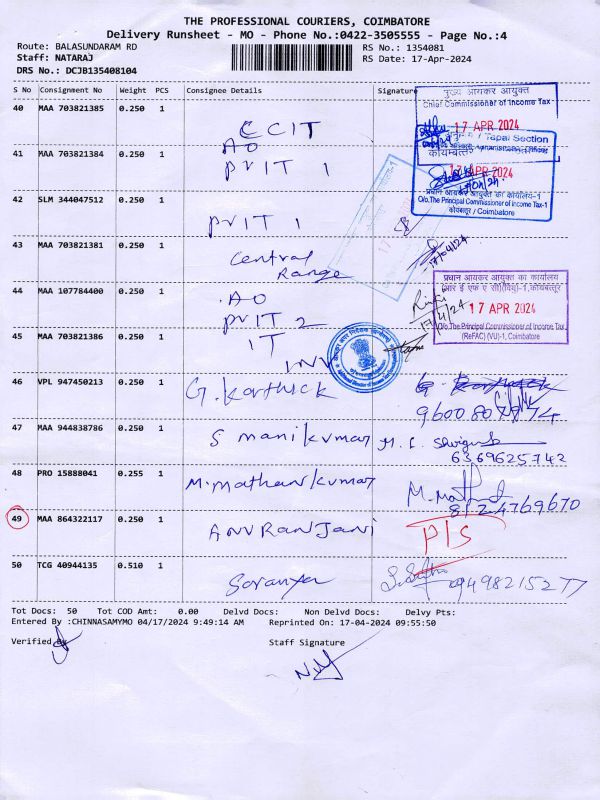 THE PROFESSIONAL COURIERS, COIMBATORE
Delivery Runsheet - MO - Phone No.:0422-3505555 - Page No.:4
Route: BALASUNDARAM RD
RS No.: 1354081
Staff: NATARAJ
RS Date: 17-Apr-2024
DRS No.: DCJB135408104
S No Consignment No Weight PCS Consignee Details Signature
40 MAA 703821385 0.250 1 CCIT
मुख्य आयकर आयुक्त
Chief Commissioner of Income Tax
17 APR 2024
/ Tapal Section
41 MAA 703821384 0.250 1 AO
PVIT 1
17 APR 2024
प्रधान आयकर आयुक्त का कार्यालय-1
O/o.The Principal Commissioner of Income Tax-1
कोयंबत्तूर / Coimbatore
42 SLM 344047512 0.250 1 PVIT 1
43 MAA 703821381 0.250 1 Central
Range
17/04/24
44 MAA 107784400 0.250 1 AO
PVIT 2
17/4/24
प्रधान आयकर आयुक्त का कार्यालय
17 APR 2024
O/o.The Principal Commissioner of Income Tax
(ReFAC) (VU)-1, Coimbatore
45 MAA 703821386 0.250 1 IT
INV
46 VPL 947450213 0.250 1 G. Karthick
47 MAA 944838786 0.250 1 S manikumar
6369625742
48 PRO 15888041 0.255 1 M. Mathan kumar M. Mathan
8124769670
49 MAA 864322117 0.250 1 ANURANJANI P/S
50 TCG 40944135 0.510 1 Saranya 09498215277
Tot Docs: 50 Tot COD Amt: 0.00 Delvd Docs: Non Delvd Docs: Delvy Pts:
Entered By :CHINNASAMYMO 04/17/2024 9:49:14 AM Reprinted On: 17-04-2024 09:55:50
Verified By Staff Signature